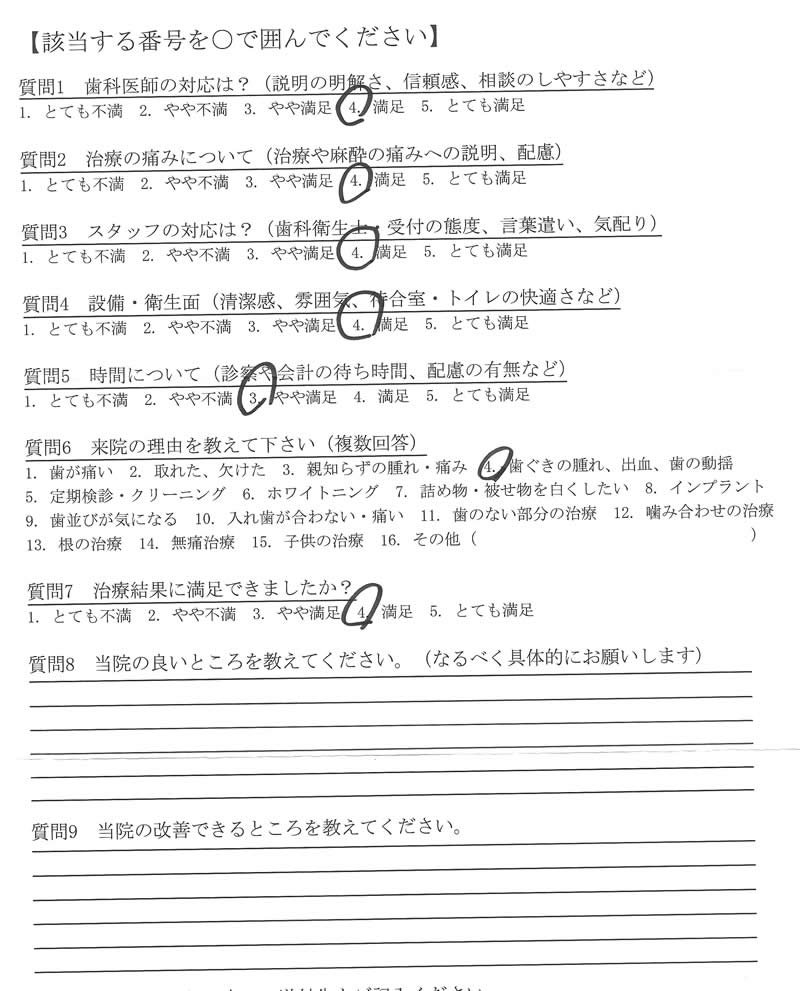 【該当する番号を〇で囲んでください】
質問1 歯科医師の対応は?(説明の明解さ、信頼感、相談のしやすさなど)
1. とても不満 2. やや不満 3. やや満足 4. 満足 5. とても満足
質問2 治療の痛みについて(治療や麻酔の痛みへの説明、配慮)
1. とても不満 2. やや不満 3. やや満足 4. 満足 5. とても満足
質問3 スタッフの対応は?(歯科衛生士・受付の態度、言葉遣い、気配り)
1. とても不満 2. やや不満 3. やや満足 4. 満足 5. とても満足
質問4 設備・衛生面(清潔感、雰囲気、待合室・トイレの快適さなど)
1. とても不満 2. やや不満 3. やや満足 4. 満足 5. とても満足
質問5 時間について(診察や会計の待ち時間、配慮の有無など)
1. とても不満 2. やや不満 3. やや満足 4. 満足 5. とても満足
質問6 来院の理由を教えて下さい(複数回答)
1. 歯が痛い 2. 取れた、欠けた 3. 親知らずの腫れ・痛み 4. 歯ぐきの腫れ、出血、歯の動揺
5. 定期検診・クリーニング 6. ホワイトニング 7. 詰め物・被せ物を白くしたい 8. インプラント
9. 歯並びが気になる 10. 入れ歯が合わない・痛い 11. 歯のない部分の治療 12. 噛み合わせの治療
13. 根の治療 14. 無痛治療 15. 子供の治療 16. その他( )
質問7 治療結果に満足できましたか?
1. とても不満 2. やや不満 3. やや満足 4. 満足 5. とても満足
質問8 当院の良いところを教えてください。(なるべく具体的にお願いします)
質問9 当院の改善できるところを教えてください。